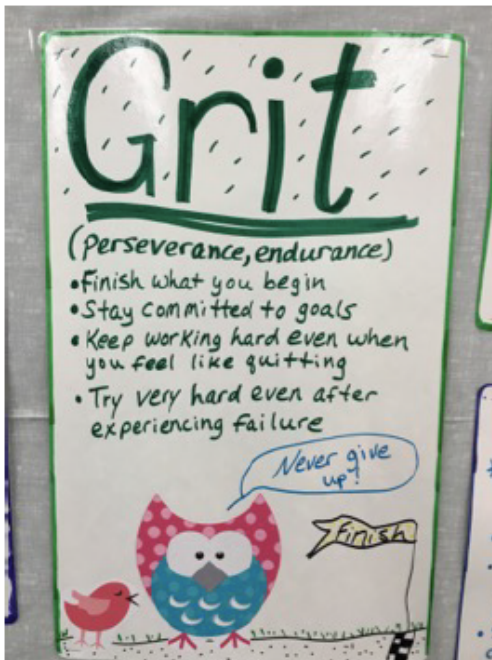 Grit
(perseverance, endurance)
•Finish what you begin
•Stay committed to goals
•Keep working hard even when
you feel like quitting
•Try very hard even after
experiencing failure
Never give
up!
Finish